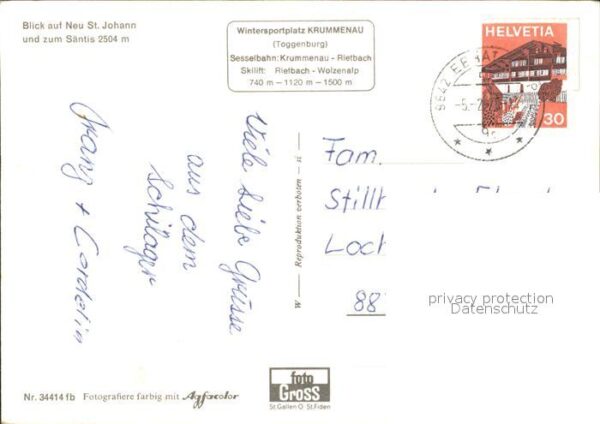 Blick auf Neu St. Johann
und zum Säntis 2504 m
Wintersportplatz KRUMMENAU
(Toggenburg)
Sesselbahn: Krummenau - Rietbach
Skilift: Rietbach - Wolzenalp
740 m — 1120 m — 1500 m
HELVETIA
30
9642 EBNAT
-5.-2
Viele liebe Grüsse
aus dem
Schilager
Franz + Cordelia
W — Reproduktion verboten — si
Fam.
Still
Loc
88
privacy protection
Datenschutz
foto
Gross
St.Gallen O St.Fiden
Nr. 34414 fb Fotografiere farbig mit Agfacolor